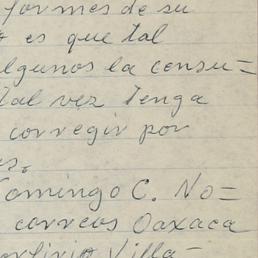 formes de su
es que tal
algunos la censu=
tal vez tenga
corregir por
Domingo C. No=
correos Oaxaca
Porfirio Villa-